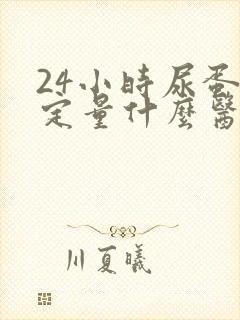 24小時尿蛋
定量什麼醫
川夏曦